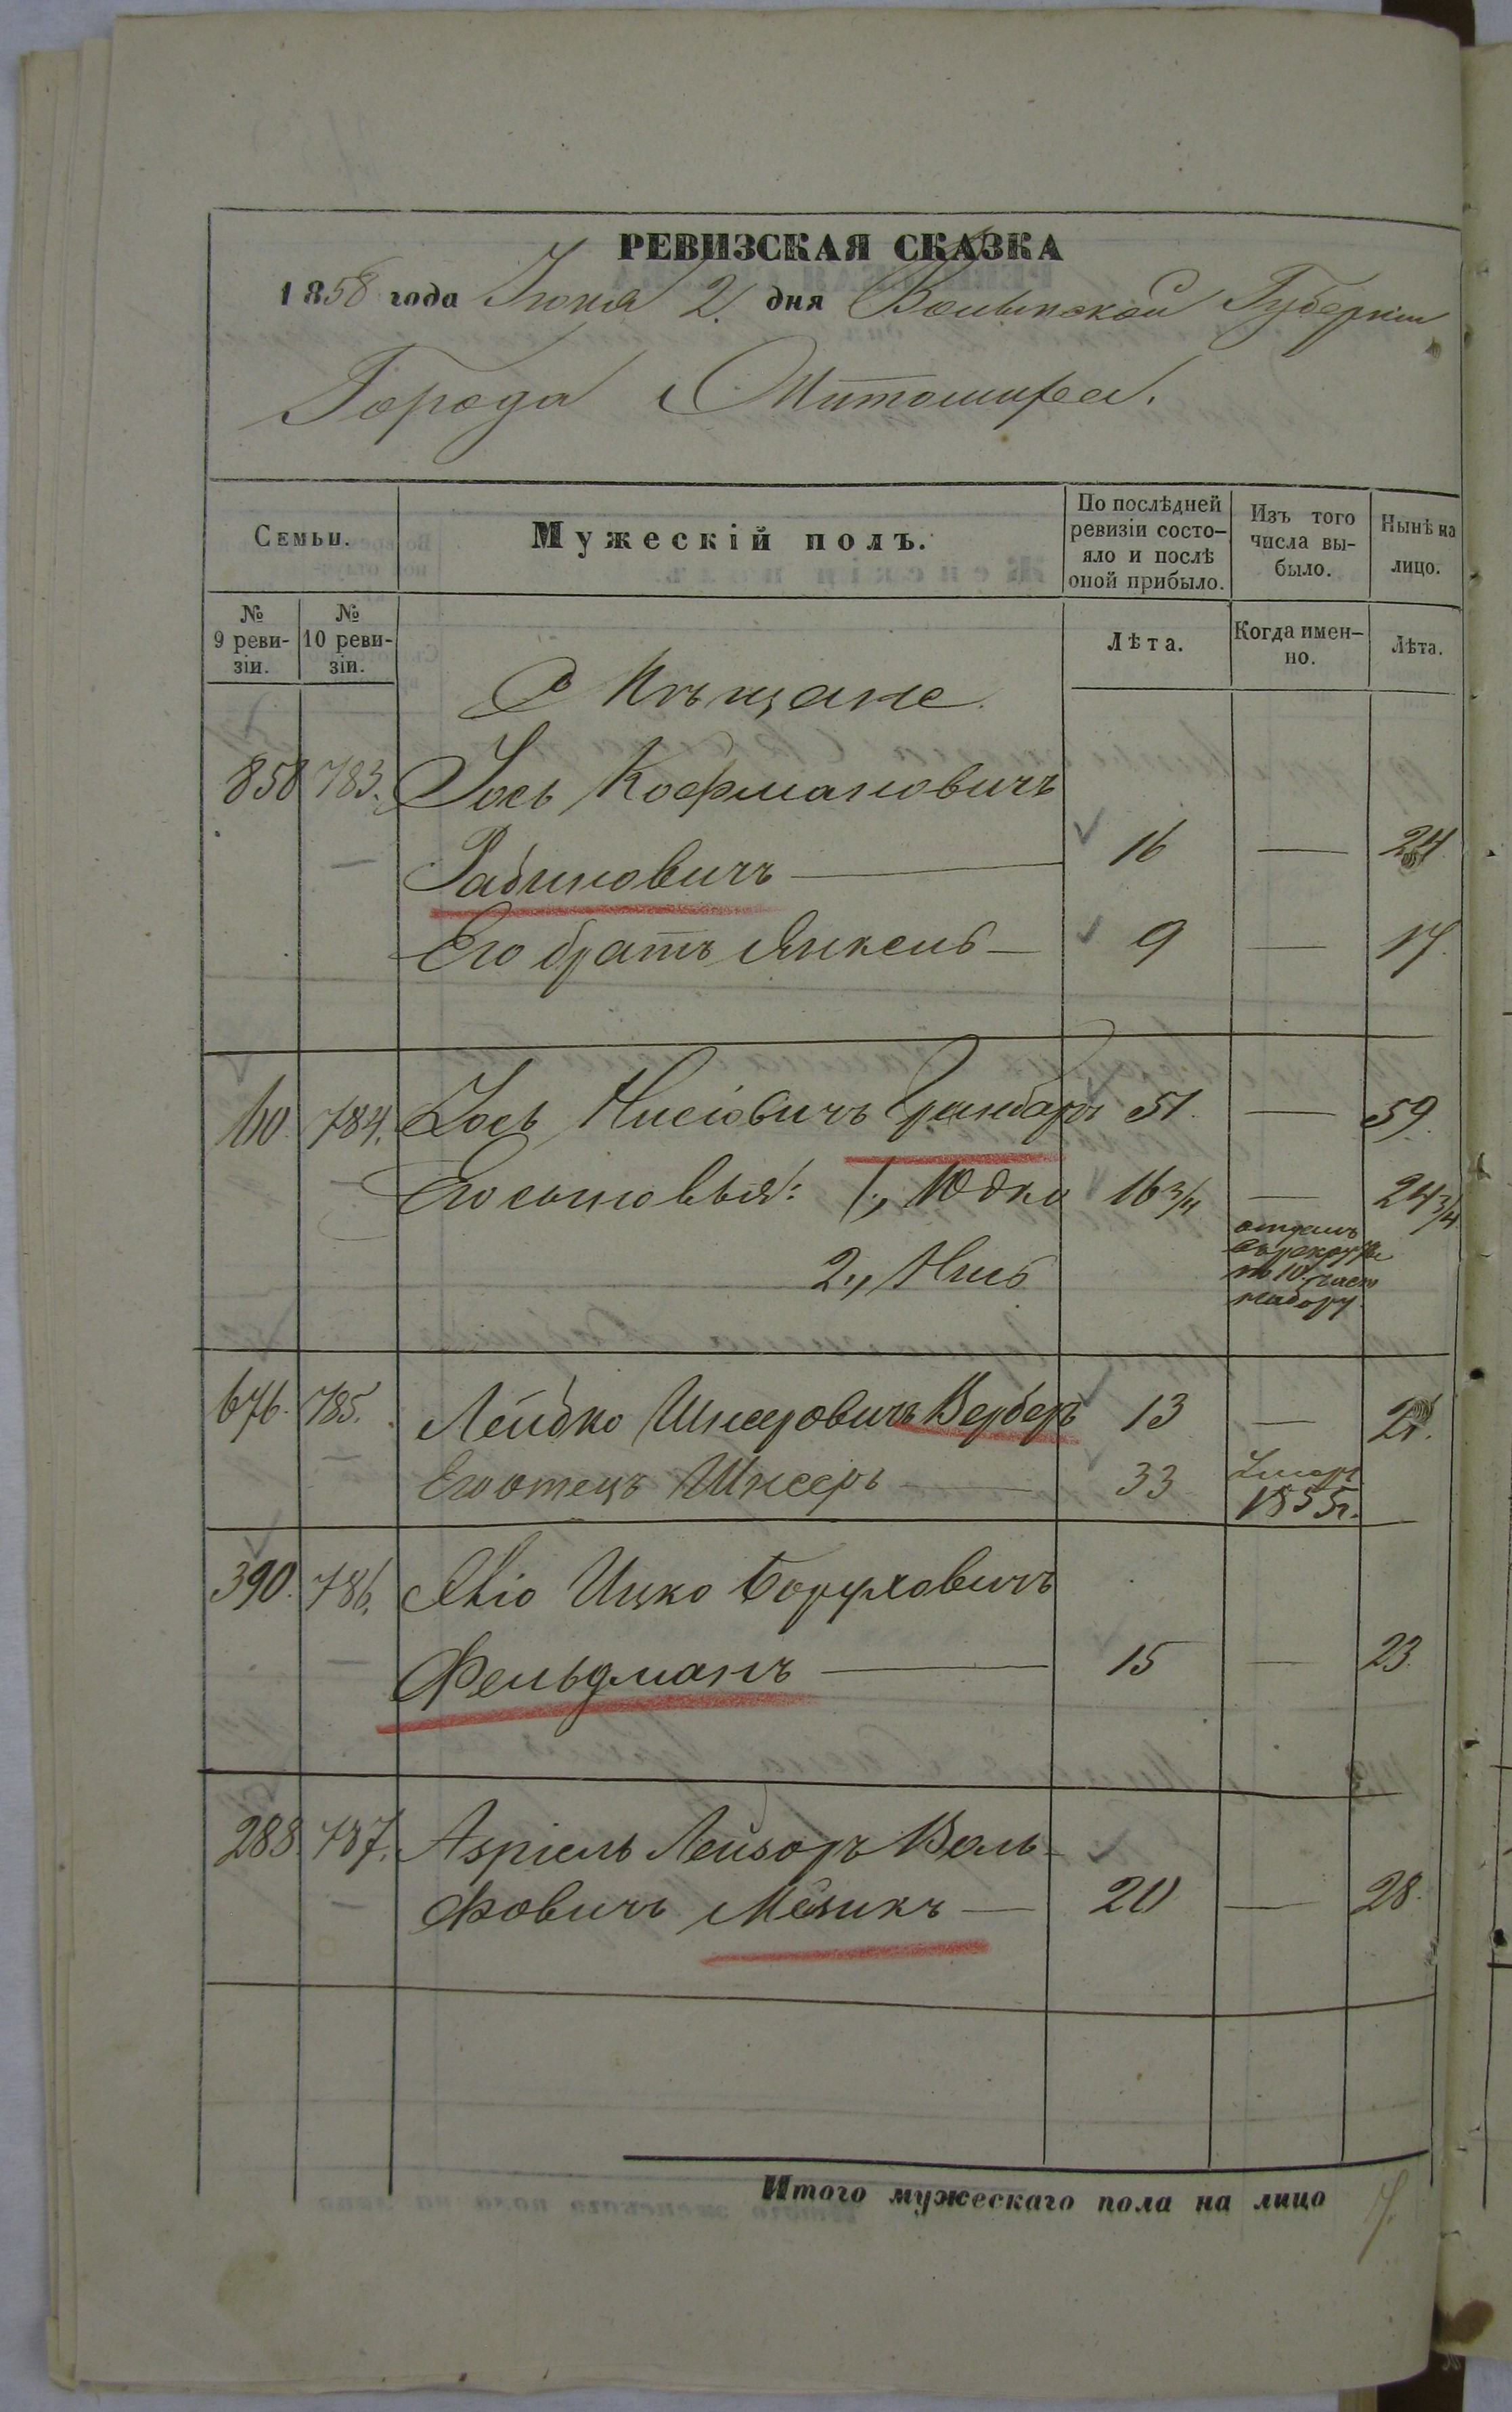 РЕВИЗСКАЯ СКАЗКА
1858 года Іюня 2. дня Волынской Губерніи
Города Житомира.
Семьи.
Мужескій полъ.
По послѣдней ревизіи состояло и послѣ оной прибыло.
Изъ того числа выбыло.
Нынѣ на лицо.
№ 9 ревизіи.
№ 10 ревизіи.
Лѣта.
Когда именно.
Лѣта.
Мѣщане.
858 783. Іось Кофмановичъ
Рабиновичъ — 16 — 24
Его братъ Янкель — 9 — 17.
784. Іось Нисіовичъ Гринбаръ 51. — 59.
Его сыновья: 1., Юдко 16 3/4 — 24 3/4
2., Нись отданъ въ рекруты по 10. част набору.
676. 785. Лейбко Шнееровичъ Верберъ 13 — 21.
Его отецъ Шнееръ — 33 Умеръ 1855г.
390. 786. Ицко Боруховичъ
Фельдманъ — 15 — 23.
288. 787. Азріель Лейзоръ Воль-
фовичъ Мезикъ — 20 — 28.
Итого мужескаго пола на лицо 7.